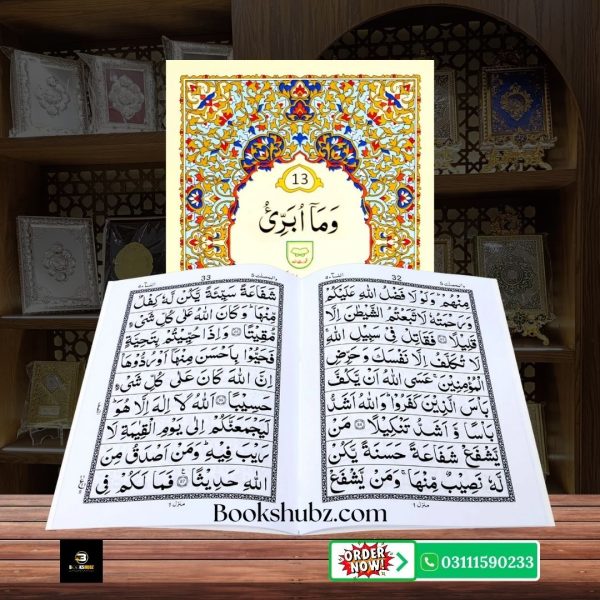 13
وَمَآ اُبَرِّئُ
32
مِنْهُمْ ؕ وَلَوْ لَا فَضْلُ اللّٰهِ عَلَیْكُمْ
وَرَحْمَتُهٗ لَاتَّبَعْتُمُ الشَّیْطٰنَ اِلَّا
قَلِیْلًا ۝ فَقَاتِلْ فِیْ سَبِیْلِ اللّٰهِ ۚ
لَا تُكَلَّفُ اِلَّا نَفْسَكَ وَحَرِّضِ
الْمُؤْمِنِیْنَ ۚ عَسَی اللّٰهُ اَنْ یَّكُفَّ
بَاْسَ الَّذِیْنَ كَفَرُوْا ؕ وَاللّٰهُ اَشَدُّ
بَاْسًا وَّ اَشَدُّ تَنْكِیْلًا ۝ مَنْ
یَّشْفَعْ شَفَاعَةً حَسَنَةً یَّكُنْ
لَّهٗ نَصِیْبٌ مِّنْهَا ۚ وَمَنْ یَّشْفَعْ
منزل ١
33
شَفَاعَةً سَیِّئَةً یَّكُنْ لَّهٗ كِفْلٌ
مِّنْهَا ؕ وَكَانَ اللّٰهُ عَلٰی كُلِّ شَیْءٍ
مُّقِیْتًا ۝ وَاِذَا حُیِّیْتُمْ بِتَحِیَّةٍ
فَحَیُّوْا بِاَحْسَنَ مِنْهَاۤ اَوْ رُدُّوْهَا ؕ
اِنَّ اللّٰهَ كَانَ عَلٰی كُلِّ شَیْءٍ
حَسِیْبًا ۝ اَللّٰهُ لَاۤ اِلٰهَ اِلَّا هُوَ ؕ
لَیَجْمَعَنَّكُمْ اِلٰی یَوْمِ الْقِیٰمَةِ لَا
رَیْبَ فِیْهِ ؕ وَمَنْ اَصْدَقُ مِنَ
اللّٰهِ حَدِیْثًا ۝ فَمَا لَكُمْ فِی
منزل ١
Bookshubz.com
ORDER NOW!
03111590233